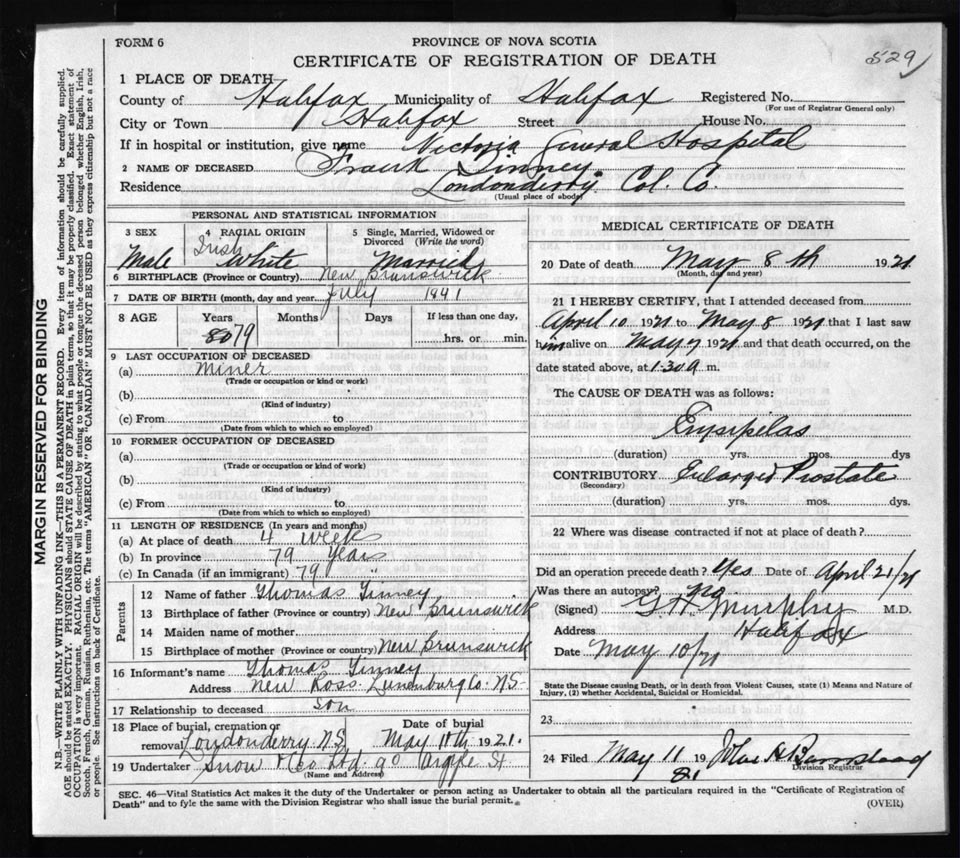 FORM 6
PROVINCE OF NOVA SCOTIA
CERTIFICATE OF REGISTRATION OF DEATH
529
1 PLACE OF DEATH
County of Halifax Municipality of Halifax Registered No.
(For use of Registrar General only)
City or Town Halifax Street House No.
If in hospital or institution, give name Victoria General Hospital
2 NAME OF DECEASED Frank Tinney.
Residence Londonderry Col. Co.
(Usual place of abode)
MARGIN RESERVED FOR BINDING
N.B.—WRITE PLAINLY WITH UNFADING INK—THIS IS A PERMANENT RECORD. Every item of information should be carefully supplied.
AGE should be stated EXACTLY. PHYSICIANS should STATE CAUSE OF DEATH in plain terms, so that it may be properly classified. Exact statement of
OCCUPATION is very important. RACIAL ORIGIN will be described by stating to what people or tongue the deceased person belonged whether English, Irish,
Scotch, French, German, Russian, Ruthenian, etc. The terms "AMERICAN" OR "CANADIAN" MUST NOT BE USED as they express citizenship but not a race
or people. See instructions on back of Certificate.
PERSONAL AND STATISTICAL INFORMATION
3 SEX 4 RACIAL ORIGIN 5 Single, Married, Widowed or
Divorced (Write the word)
Male Irish White Married
6 BIRTHPLACE (Province or Country) New Brunswick
7 DATE OF BIRTH (month, day and year) July 1841
8 AGE Years Months Days If less than one day,
80 79 hrs. or min.
9 LAST OCCUPATION OF DECEASED
(a) Miner
(Trade or occupation or kind or work)
(b)
(Kind of industry)
(c) From to
(Date from which to which so employed)
10 FORMER OCCUPATION OF DECEASED
(a)
(Trade or occupation or kind of work)
(b)
(Kind of industry)
(c) From to
(Date from which to which so employed)
11 LENGTH OF RESIDENCE (In years and months)
(a) At place of death 4 weeks
(b) In province 79 years
(c) In Canada (if an immigrant) 79 "
Parents
12 Name of father Thomas Tinney
13 Birthplace of father (Province or country) New Brunswick
14 Maiden name of mother
15 Birthplace of mother (Province or country) New Brunswick
16 Informant's name Thomas Tinney
Address New Ross Lunenburg Co. N.S.
17 Relationship to deceased son
18 Place of burial, cremation or Date of burial
removal Londonderry N.S. May 11th 1921.
19 Undertaker Snow & Co Ltd 90 Argyle St
(Name and Address)
MEDICAL CERTIFICATE OF DEATH
20 Date of death May 8th 1921
(Month, day and year)
21 I HEREBY CERTIFY, that I attended deceased from
April 10 1921 to May 8 1921 that I last saw
him alive on May 7 1921 and that death occurred, on the
date stated above, at 1.30 a m.
The CAUSE OF DEATH was as follows:
Erysipelas
(duration) yrs. mos. dys
CONTRIBUTORY Enlarged Prostate
(Secondary)
(duration) yrs. mos. dys.
22 Where was disease contracted if not at place of death?
Did an operation precede death? Yes Date of April 21/21
Was there an autopsy? no.
(Signed) G H Murphy M.D.
Address Halifax
Date May 10/21
State the Disease causing Death, or in death from Violent Causes, state (1) Means and Nature of
Injury, (2) whether Accidental, Suicidal or Homicidal.
23
24 Filed May 11 19 21 John H Barnstead
Division Registrar
SEC. 46—Vital Statistics Act makes it the duty of the Undertaker or person acting as Undertaker to obtain all the particulars required in the "Certificate of Registration of
Death" and to fyle the same with the Division Registrar who shall issue the burial permit.
(OVER)